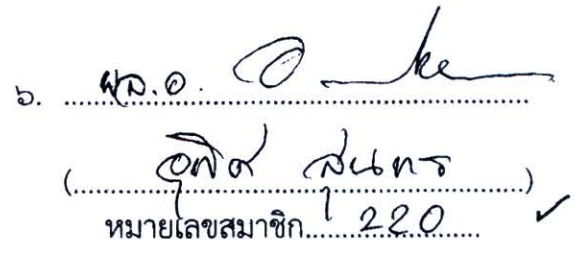 ๖. ผศ.อ.
(อุทิศ สุนทร)
หมายเลขสมาชิก 220 ✓